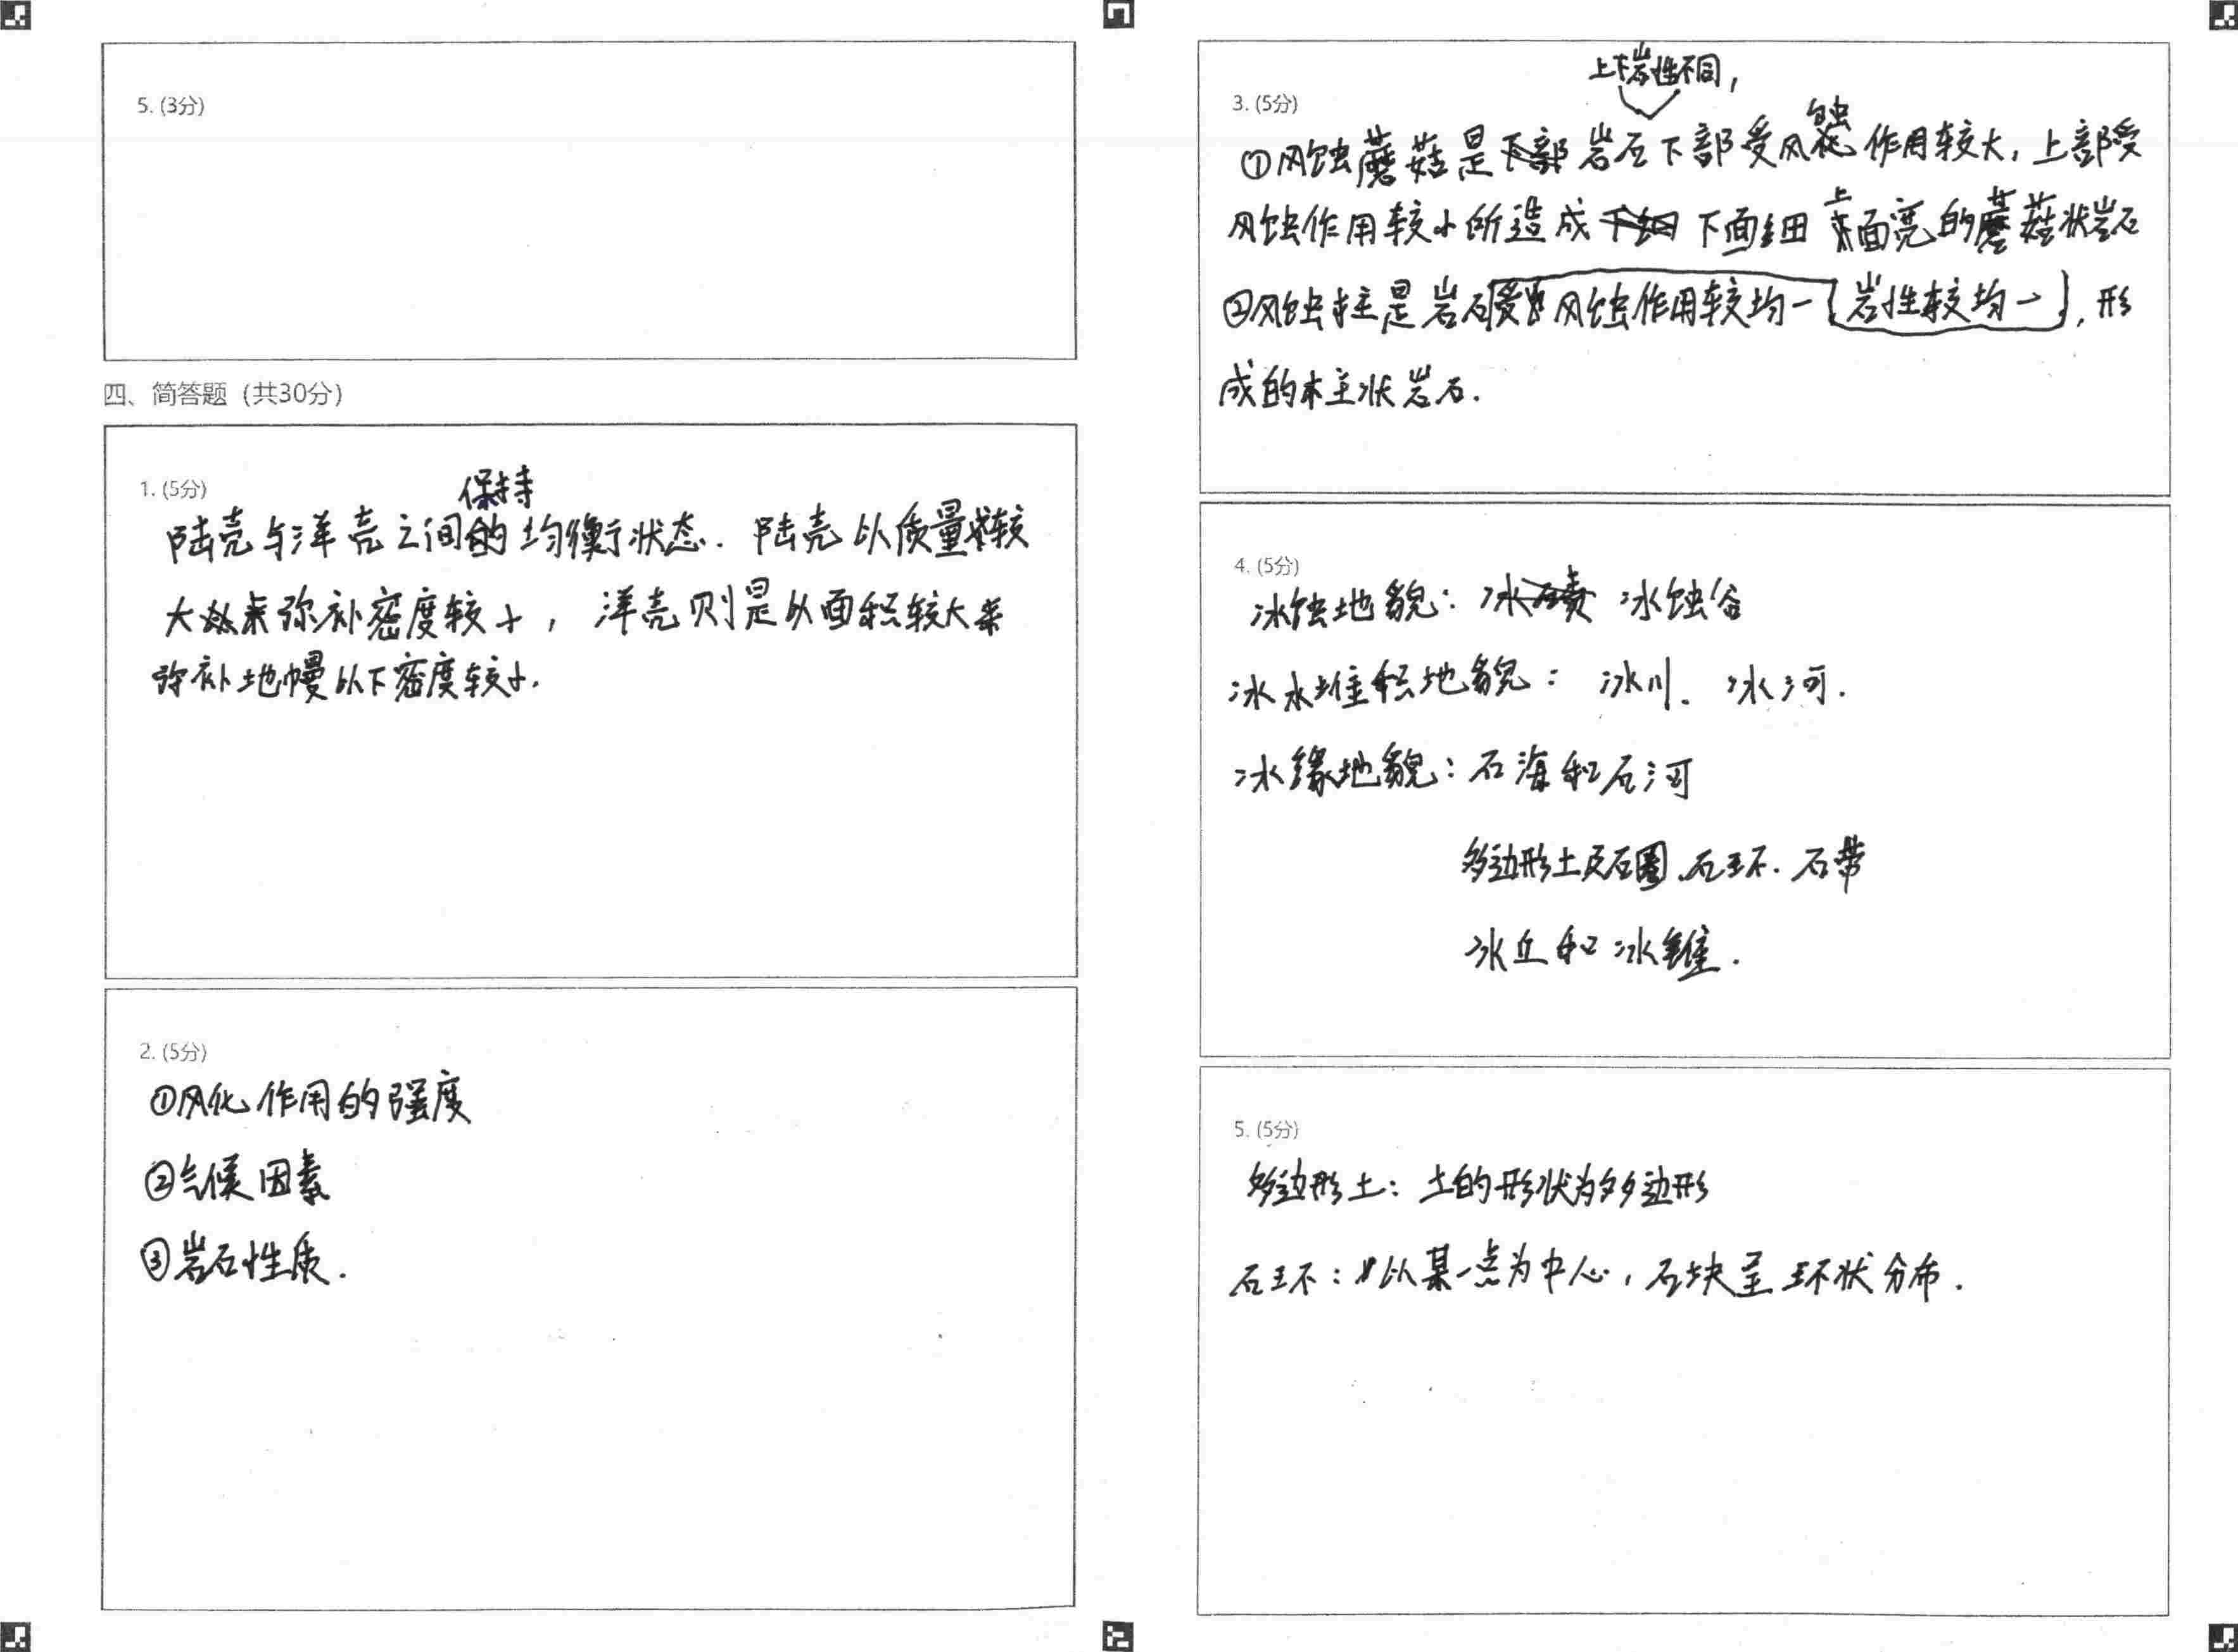 5. (3分)
四、简答题（共30分）
1. (5分)
保持
陆壳与洋壳之间的均衡状态. 陆壳以质量较
大来弥补密度较小, 洋壳则是以面积较大来
弥补地幔以下密度较小.
2. (5分)
①风化作用的强度
②气候因素
③岩石性质.
上下岩性不同,
3. (5分)
①风蚀蘑菇是岩石下部受风蚀作用较大, 上部受
风蚀作用较小所造成下面细上面宽的蘑菇状岩石
②风蚀柱是岩石受风蚀作用较均一(岩性较均一), 形
成的柱状岩石.
4. (5分)
冰蚀地貌: 冰蚀谷
冰水堆积地貌: 冰川. 冰河.
冰缘地貌: 石海和石河
多边形土及石圈.石环.石带
冰丘和冰锥.
5. (5分)
多边形土: 土的形状为多边形
石环: 以某一点为中心, 石块呈环状分布.